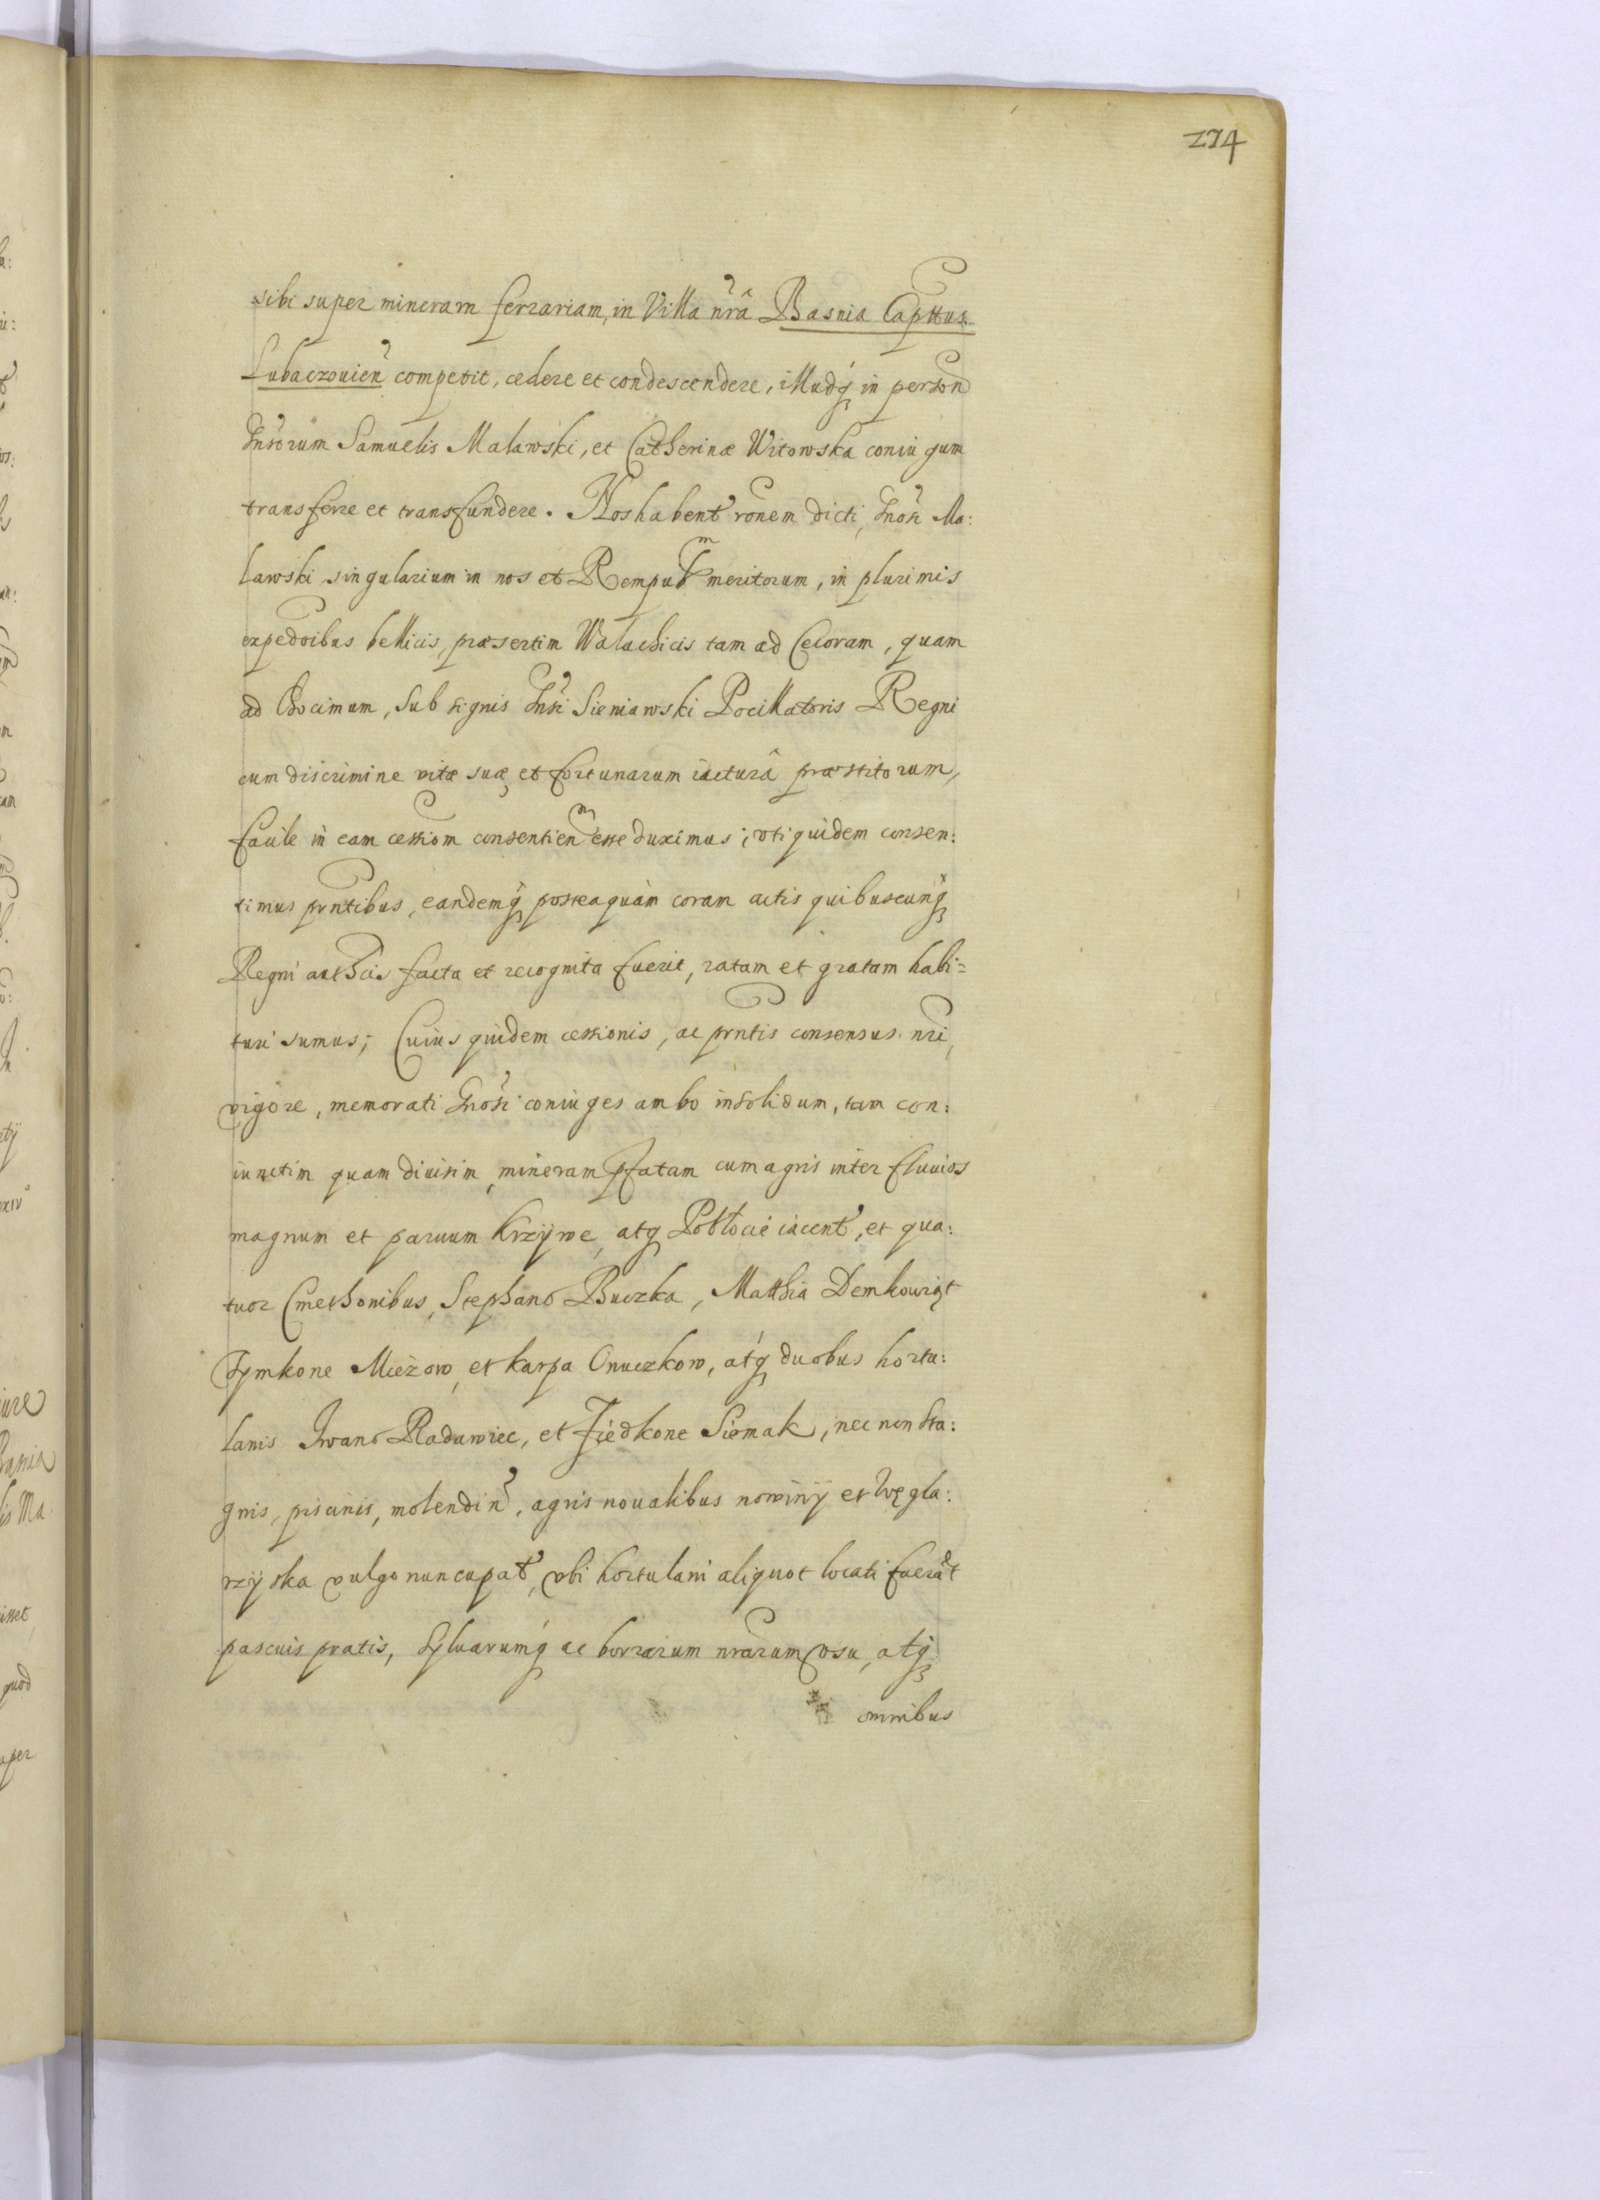 274
sibi super mineram ferrariam, in Villa nrâ Basnia Capttus
Lubaczouien competit, cedere et condescendere, illudq in person
Gnsorum Samuelis Malawski, et Catherinæ Witowska coniugum
transferre et transfundere. Nos habent ronem dicti Gnosi Ma:
lawski singularium in nos et Rempubm meritorum, in plurimis
expedoibus bellicis, præsertim Walachicis tam ad Cecoram, quam
ad Chocimum, sub signis Gnsi Sieniawski Pocillatoris Regni
cum discrimine vitæ suæ et fortunarum iacturâ præstitorum,
facile in eam cessiom consentienm esse duximus; vti quidem consen:
timus prntibus, eandemq posteaquàm coram actis quibuscunq
Regni authcis facta et recognita fuerit, ratam et gratam habi=
turi sumus; Cuius quidem cessionis, ac prntis consensus nri,
vigore, memorati Gnosi coniuges ambo insolidum, tam con:
iunctim quam diuisim, mineram pfatam cum agris inter fluuios
magnum et paruum Krzywe, atq Pobłocie iacent, et qua:
tuor Cmethonibus, Stephano Buczka, Matthia Demkowiąt
Tymkone Miezow, et Karpa Onuczkow, atq duobus hortu:
lanis Iwano Radawiec, et Fiedkone Siemak, nec non sta:
gnis, piscinis, molendin, agris noualibus nowiny et Węgla:
rzyska vulgo nuncupat, vbi hortulani aliquot locati fuerat
pascuis pratis, syluarumq ac borrarum nrarum vsu, atq
omnibus